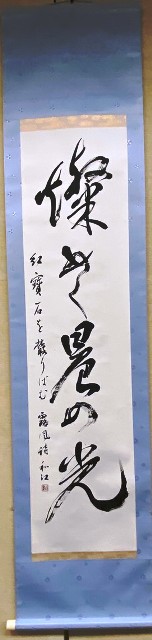 燦めく晨の光
紅寶石を散りばむ 露風詩 和江